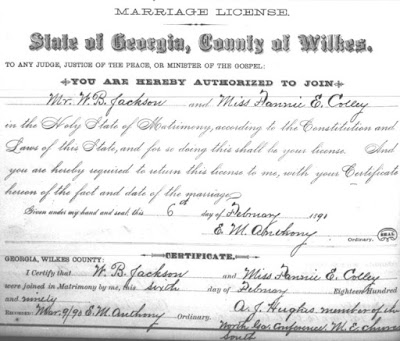 MARRIAGE LICENSE.
State of Georgia, County of Wilkes.
TO ANY JUDGE, JUSTICE OF THE PEACE, OR MINISTER OF THE GOSPEL:
YOU ARE HEREBY AUTHORIZED TO JOIN
Mr. W. B. Jackson and Miss Fannie E. Colley
in the Holy State of Matrimony, according to the Constitution and
Laws of this State, and for so doing this shall be your license. And
you are hereby required to return this license to me, with your Certificate
hereon of the fact and date of the marriage.
Given under my hand and seal, this 6th day of February 1890
E. M. Anthony
Ordinary. SEAL
CERTIFICATE.
GEORGIA, WILKES COUNTY:
I Certify that W. B. Jackson and Miss Fannie E. Colley
were joined in Matrimony by me, this sixth day of February Eighteen Hundred
and ninety A. J. Hughes member of the
Recorded Mar. 9/90 E. M. Anthony Ordinary.
North Ga. Conference, M. E. church
South